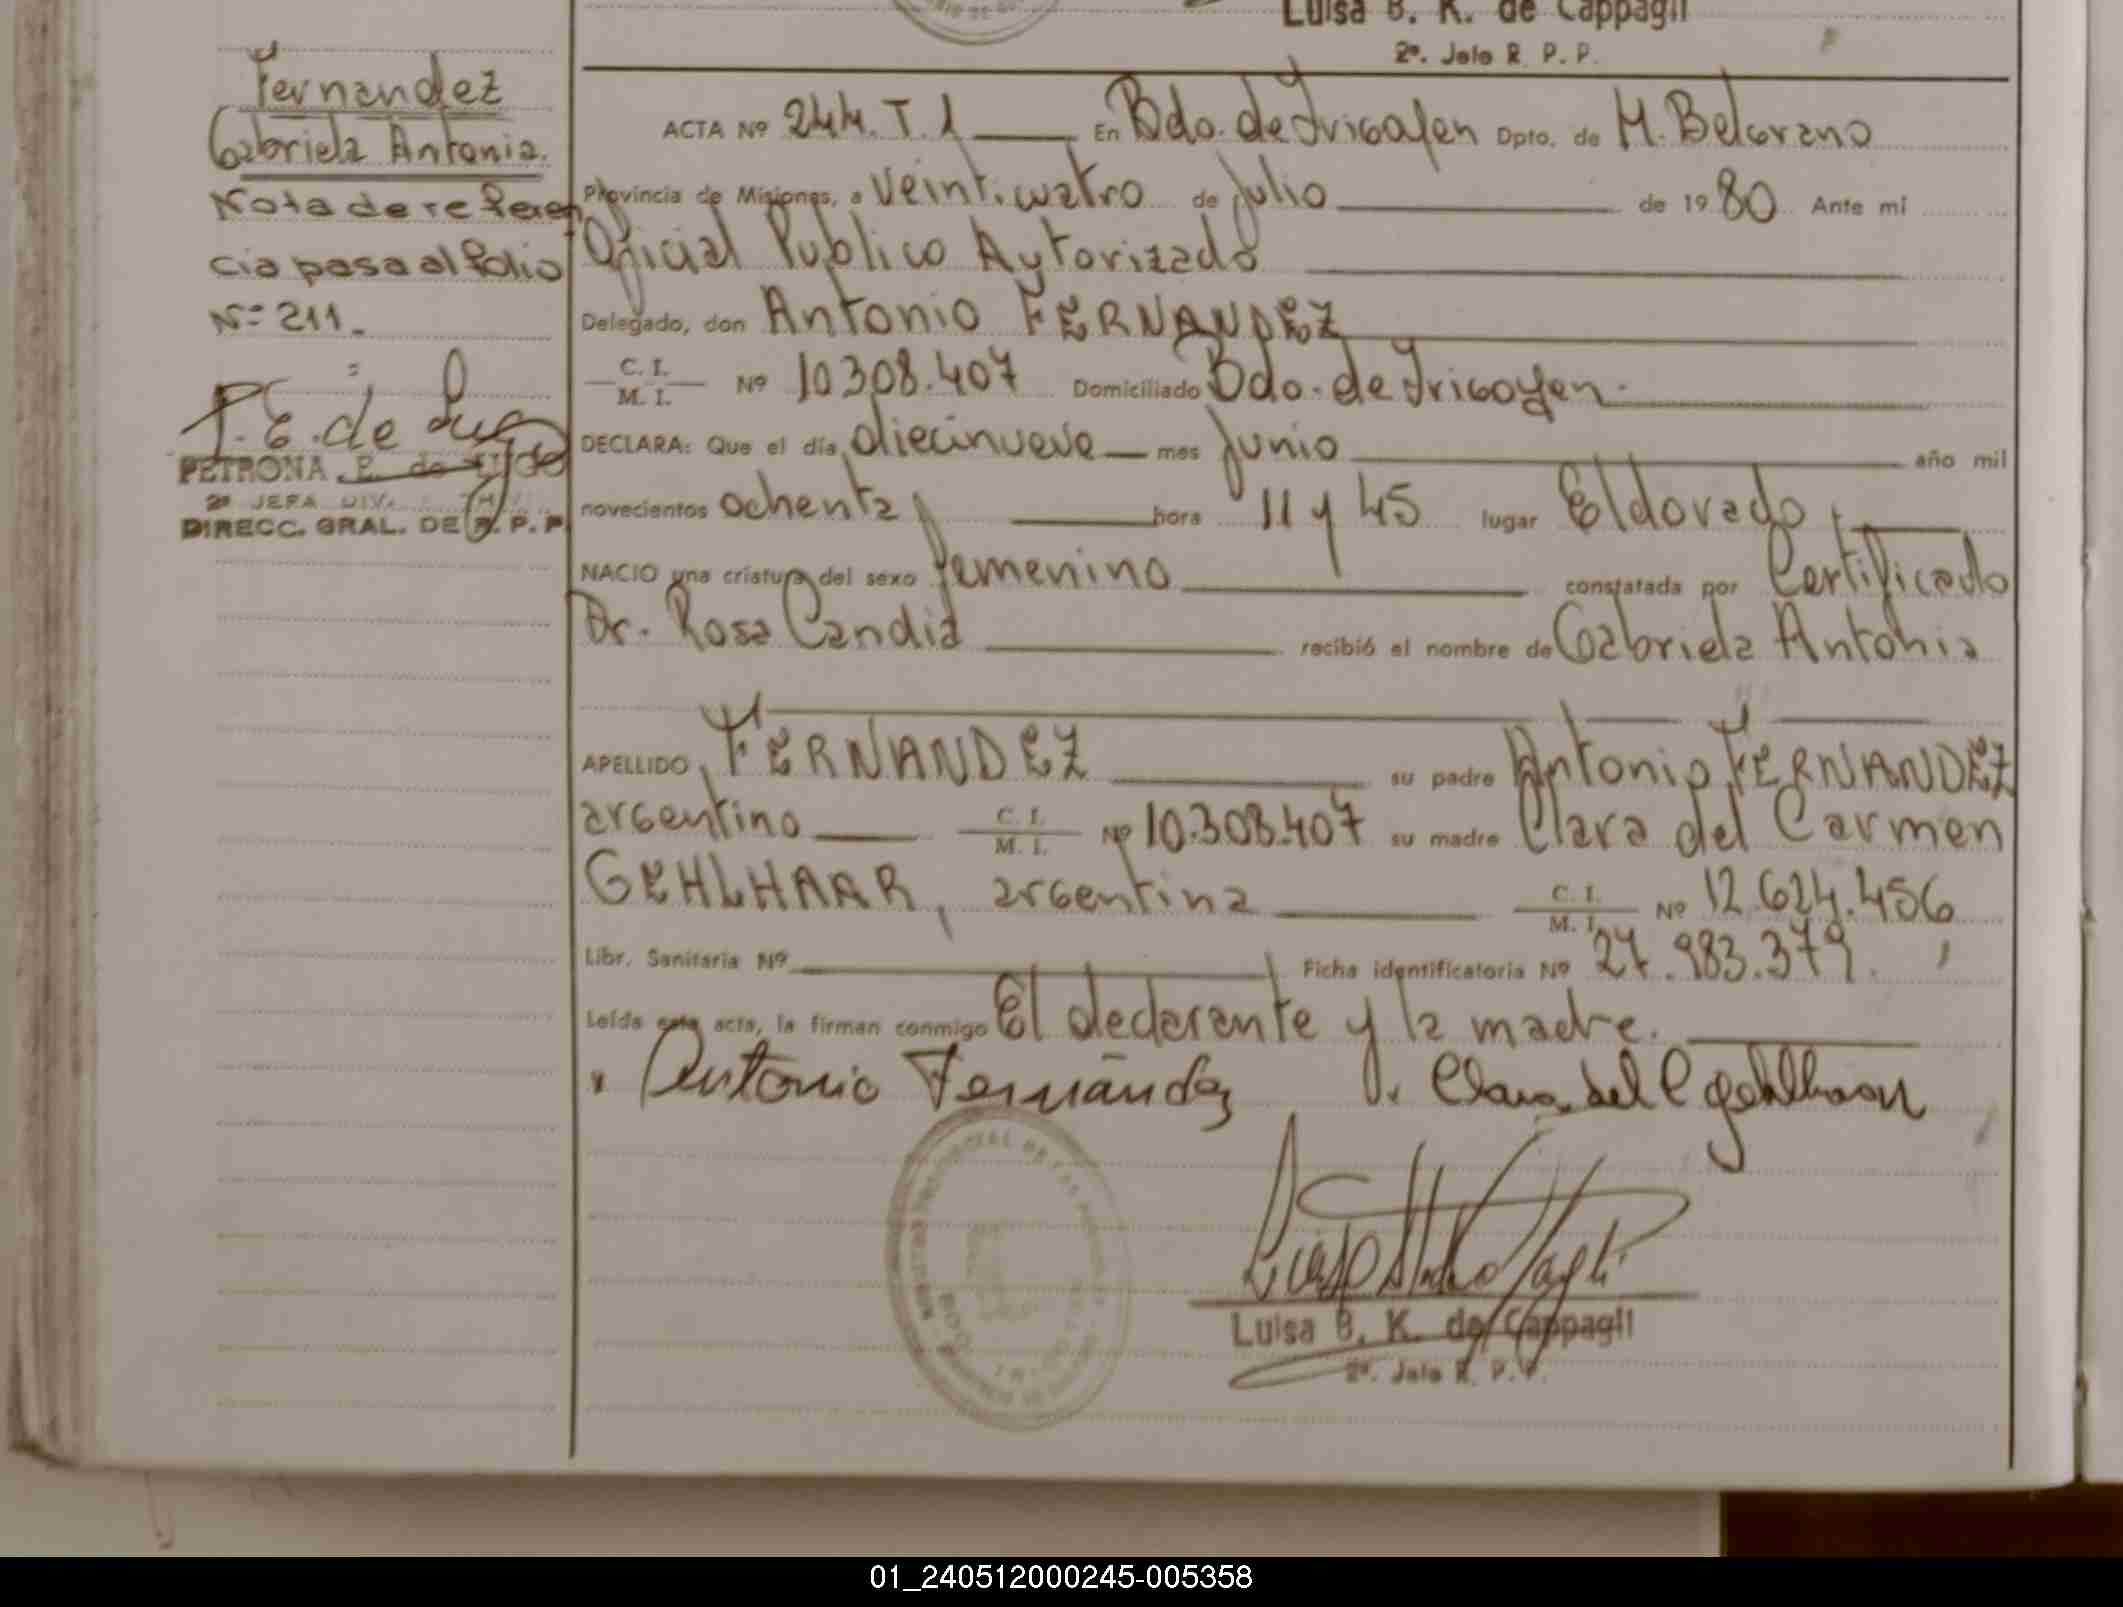 Luisa B. K. de Cappagli
2ª. Jefe R. P. P.
Fernandez
Gabriela Antonia.
Nota de referen
cia pasa al folio
Nº 211.
P. E. de
PETRONA E. de
2ª JEFA DIV.
DIRECC. GRAL. DE R. P. P.
ACTA Nº 244. T. 1 En Bdo. de Irigoyen Dpto. de M. Belgrano
Provincia de Misiones, a Veinticuatro de Julio de 1980 Ante mi
Oficial Publico Autorizado
Delegado, don Antonio FERNANDEZ
C. I. / M. I. Nº 10308.407 Domiciliado Bdo. de Irigoyen.
DECLARA: Que el día diecinueve mes Junio año mil
novecientos ochenta, hora 11 y 45 lugar Eldorado,
NACIO una criatura del sexo femenino constatada por Certificado
Dr. Rosa Candia recibió el nombre de Gabriela Antonia
APELLIDO FERNANDEZ su padre Antonio FERNANDEZ
argentino C. I. / M. I. Nº 10.308.407 su madre Clara del Carmen
GEHLHAAR, argentina C. I. / M. I. Nº 12.624.456
Libr. Sanitaria Nº Ficha identificatoria Nº 27.983.379.
Leída esta acta, la firman conmigo El declarante y la madre.
Antonio Fernández Clara del C Gehlhaar
Luisa B. K. de Cappagli
2ª. Jefe R. P. P.
01_240512000245-005358